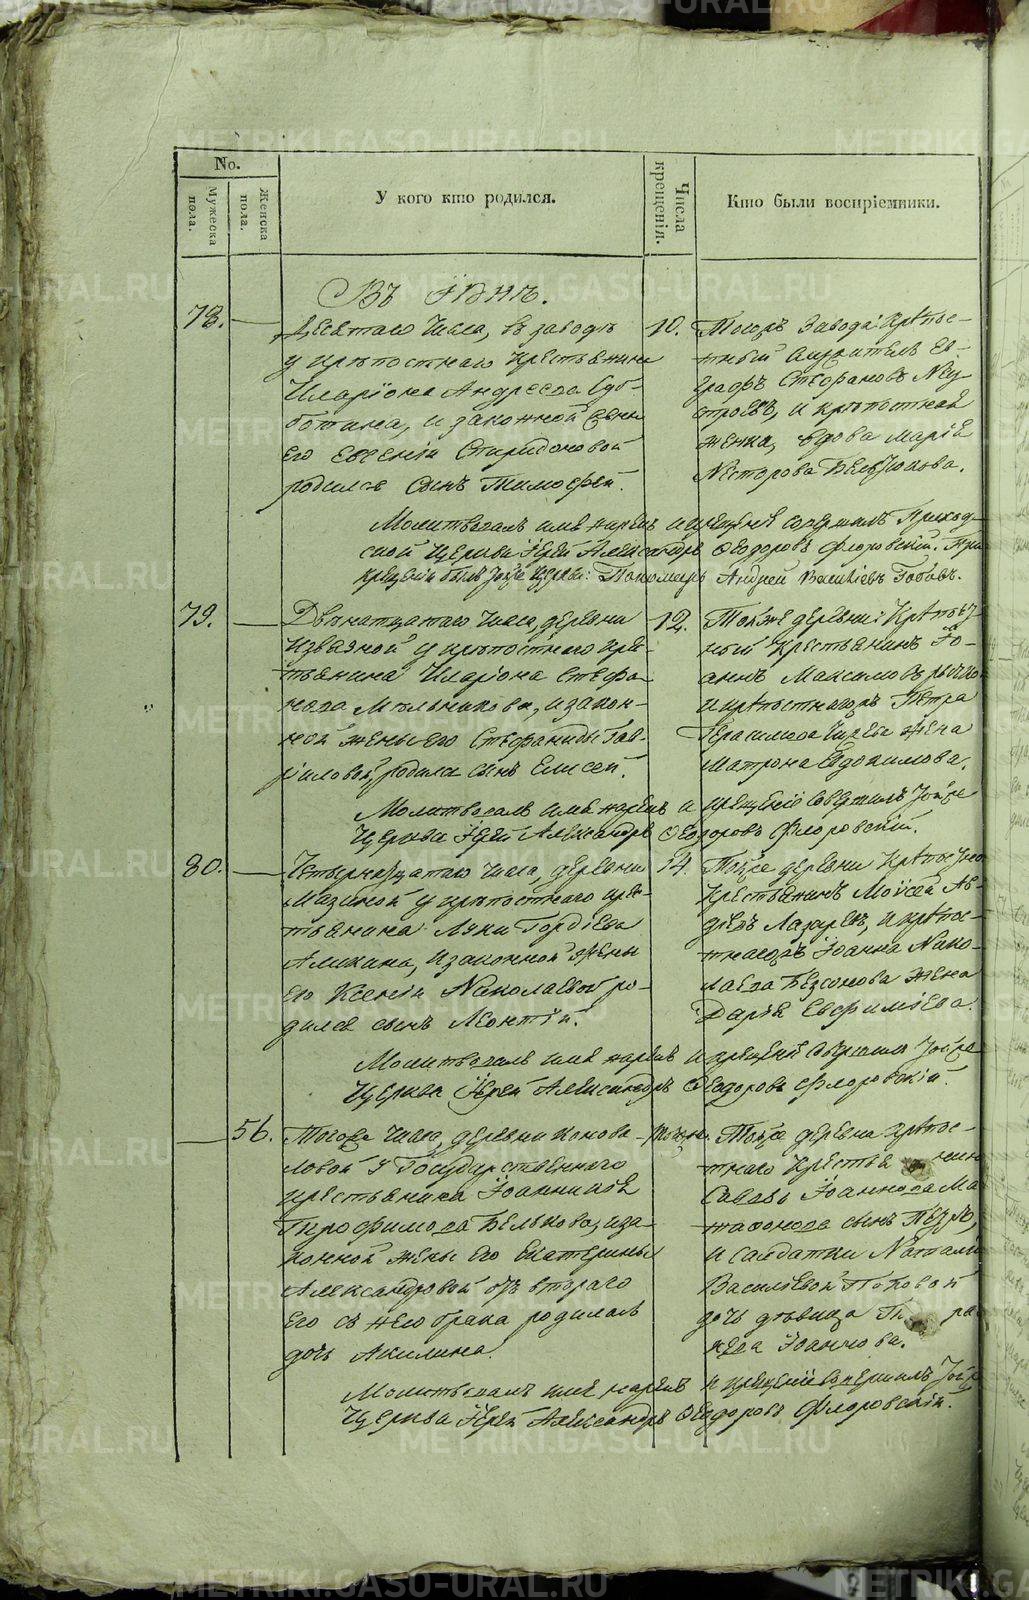 METRIKI.GASO-URAL.RU
No.
Мужеска пола.
Женска пола.
У кого кто родился.
Числа крещенія.
Кто были воспріемники.
Въ Іюнѣ.
78.
Десятаго Числа, въ заводѣ
у крѣпостнаго крестьянина
Иларіона Андреева Суб-
ботина, и законной жены
его Евгеніи Спиридоновой
родился Сынъ Тимофей.
10.
Тогожъ Завода: Крѣпос-
тный Ев-
графъ Стефановъ
и крѣпостная
женка, вдова Марія
Нестерова
Молитвовалъ имя нарекъ и крещеніе совершилъ Приход-
ской Церкви Іерей Александръ Феодоровъ Флоровскій. При
крещеніи былъ Тойже Церкви: Пономарь Андрей Васильевъ
79.
Двенатцатаго Числа, деревни
у крѣпостнаго кре-
стьянина Иларіона Стефа-
нова Мѣльникова, и закон-
ной жены его Стефаниды Гав-
риловой, родился сынъ Елисей.
12.
Тойже деревни: Крѣпост-
ный Крестьянинъ Іо-
аннъ Максимовъ
и крѣпостнагожъ Петра
Герасимова жена
Матрона Евдокимова.
Молитвовалъ имя нарекъ и крещеніе совершилъ Тойже
Церкви Іерей Александръ Феодоровъ Флоровскій.
80.
Четырнадцатаго Числа, деревни
Мазиной у крѣпостнаго кре-
стьянина Луки Гордіева
Аликина, и законной жены
его Ксеніи Николаевой ро-
дился сынъ Леонтій.
14.
Тойже деревни Крѣпостной
Крестьянинъ Моисей Ав-
деевъ Лазаревъ, и крѣпос-
тнагожъ Іоанна Нико-
лаева Безсонова жена
Дарія Евфиміева.
Молитвовалъ имя нарекъ и крещеніе совершилъ Тойже
Церкви Іерей Александръ Феодоровъ Флоровскій.
56.
Тогоже Числа, деревни Конова-
ловой у Государственнаго
крестьянина Іоанникія
Трофимова Белькова, и за-
конной жены его Екатерины
Александровой отъ втораго
его съ нею брака родилась
дочь Акилина.
Тойже деревни крѣпос-
тнаго Крестья нина
Саввы Іоаннова
сынъ Петръ,
и солдатки Наталіи
Васильевой Поповой
дочь дѣвица
Іоаннова.
Молитвовалъ имя нарекъ и крещеніе совершилъ Тойже
Церкви Іерей Александръ Феодоровъ Флоровскій.